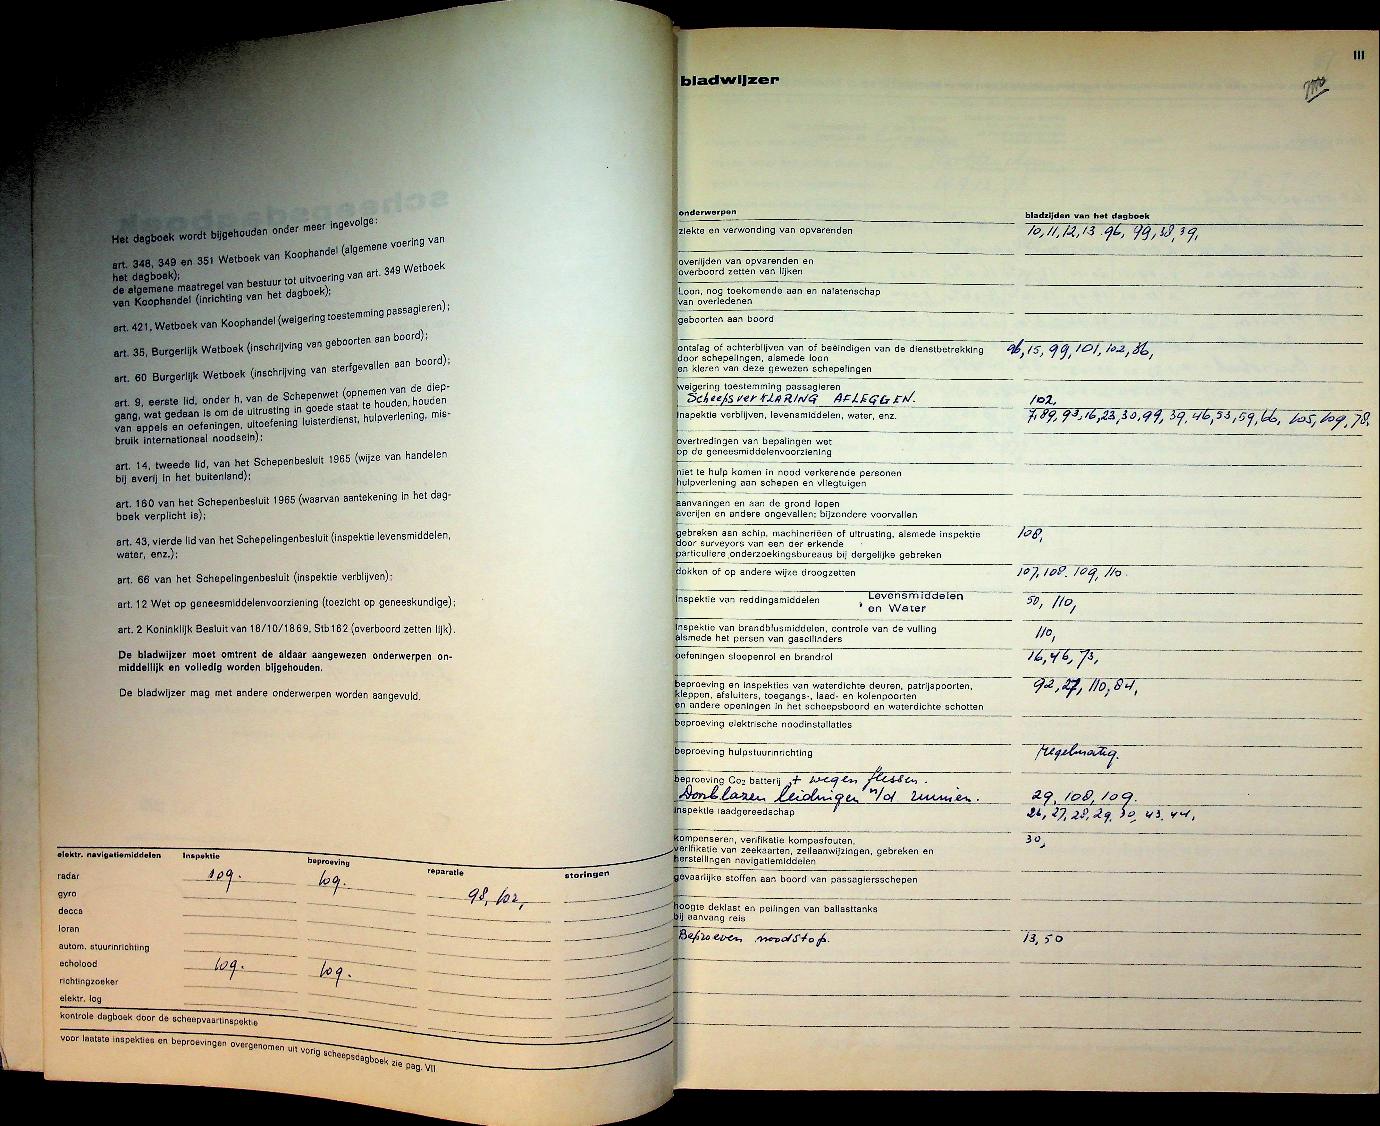 Het dagboek wordt bijgehouden onder meer ingevolge:
art. 348, 349 en 351 Wetboek van Koophandel (algemene voering van
het dagboek);
de algemene maatregel van bestuur tot uitvoering van art. 349 Wetboek
van Koophandel (inrichting van het dagboek);
art. 421, Wetboek van Koophandel (weigering toestemming passagieren);
art. 35, Burgerlijk Wetboek (inschrijving van geboorten aan boord);
art. 60 Burgerlijk Wetboek (inschrijving van sterfgevallen aan boord);
art. 9, eerste lid, onder h, van de Schepenwet (opnemen van de diep-
gang, wat gedaan is om de uitrusting in goede staat te houden, houden
van appels en oefeningen, uitoefening luisterdienst, hulpverlening, mis-
bruik internationaal noodsein);
art. 14, tweede lid, van het Schepenbesluit 1965 (wijze van handelen
bij averij in het buitenland);
art. 160 van het Schepenbesluit 1965 (waarvan aantekening in het dag-
boek verplicht is);
art. 43, vierde lid van het Schepelingenbesluit (inspektie levensmiddelen,
water, enz.);
art. 66 van het Schepelingenbesluit (inspektie verblijven);
art. 12 Wet op geneesmiddelenvoorziening (toezicht op geneeskundige);
art. 2 Koninklijk Besluit van 18/10/1869, Stb 162 (overboord zetten lijk).
De bladwijzer moet omtrent de aldaar aangewezen onderwerpen on-
middellijk en volledig worden bijgehouden.
De bladwijzer mag met andere onderwerpen worden aangevuld.
elektr. navigatiemiddelen inspektie beproeving reparatie storingen
radar 109. 109.
gyro 98, 102,
decca
loran
autom. stuurinrichting
echolood 109. 109.
richtingzoeker
elektr. log
kontrole dagboek door de scheepvaartinspektie
voor laatste inspekties en beproevingen overgenomen uit vorig scheepsdagboek zie pag. VII
III
bladwijzer
onderwerpen bladzijden van het dagboek
ziekte en verwonding van opvarenden 10, 11, 12, 13 96, 99, 38, 39,
overlijden van opvarenden en
overboord zetten van lijken
Loon, nog toekomende aan en nalatenschap
van overledenen
geboorten aan boord
ontslag of achterblijven van of beëindigen van de dienstbetrekking 96, 15, 99, 101, 102, 86,
door schepelingen, alsmede loon
en kleren van deze gewezen schepelingen
weigering toestemming passagieren
ScheepsverKLARING AFLEGGEN. 102,
inspektie verblijven, levensmiddelen, water, enz. 7, 89, 93, 16, 23, 30, 99, 39, 46, 53, 59, 66, 105, 109, 78,
overtredingen van bepalingen wet
op de geneesmiddelenvoorziening
niet te hulp komen in nood verkerende personen
hulpverlening aan schepen en vliegtuigen
aanvaringen en aan de grond lopen
averijen en andere ongevallen; bijzondere voorvallen
gebreken aan schip, machinerieën of uitrusting, alsmede inspektie 108,
door surveyors van een der erkende
particuliere onderzoekingsbureaus bij dergelijke gebreken
dokken of op andere wijze droogzetten 107, 108. 109, 110.
inspektie van reddingsmiddelen , Levensmiddelen 50, 110,
en Water
inspektie van brandblusmiddelen, controle van de vulling 110,
alsmede het persen van gascilinders
oefeningen sloepenrol en brandrol 16, 46, 73,
beproeving en inspekties van waterdichte deuren, patrijspoorten, 92, 27, 110, 84,
kleppen, afsluiters, toegangs-, laad- en kolenpoorten
en andere openingen in het scheepsboord en waterdichte schotten
beproeving elektrische noodinstallaties
beproeving hulpstuurinrichting regelmatig.
beproeving Co₂ batterij + wegen flessen.
Doorblazen leidingen n/d ruimen. 29, 108, 109.
inspektie laadgereedschap 26, 27, 28, 29, 30, 43, 44,
kompenseren, verifikatie kompasfouten, 30,
verifikatie van zeekaarten, zeilaanwijzingen, gebreken en
herstellingen navigatiemiddelen
gevaarlijke stoffen aan boord van passagiersschepen
hoogte deklast en peilingen van ballasttanks
bij aanvang reis
Beproeven noodstop. 13, 50